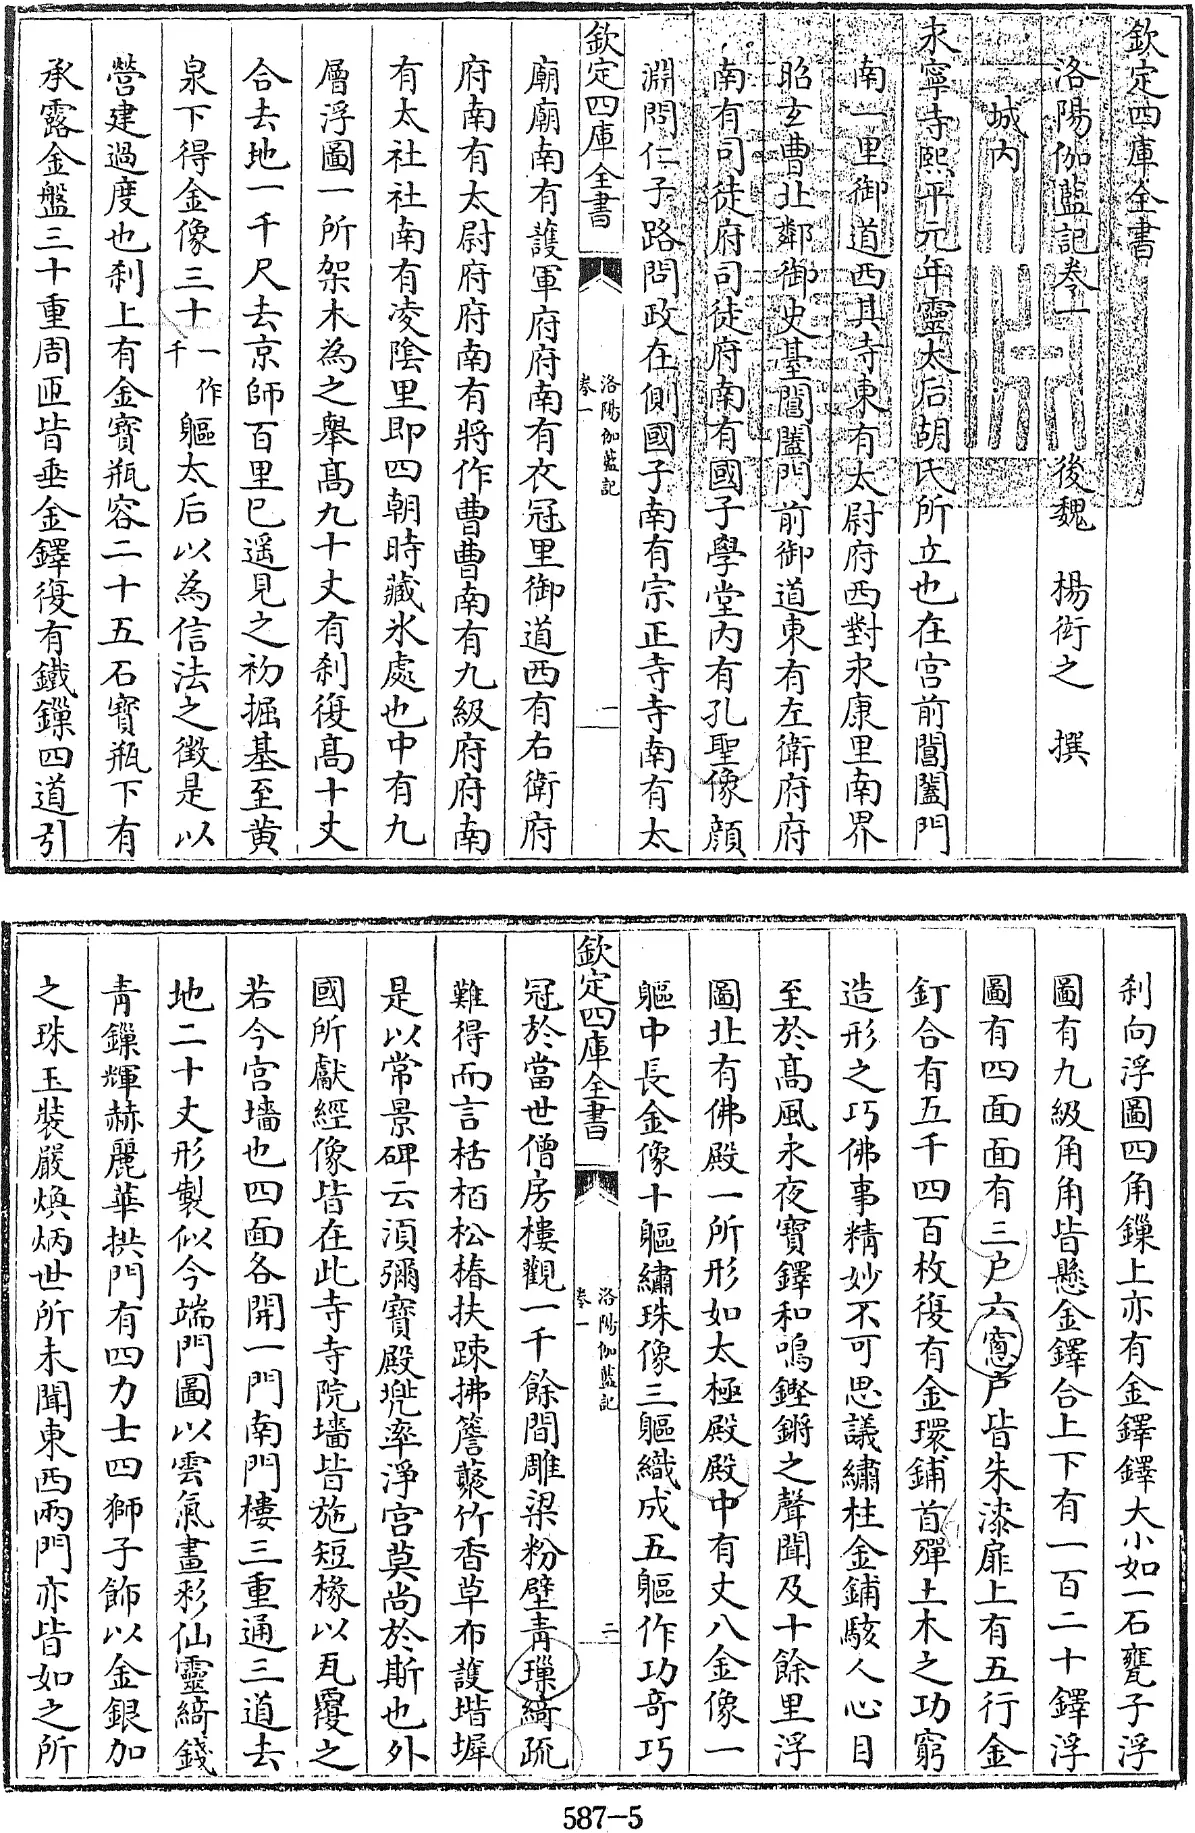 欽定四庫全書
洛陽伽藍記卷一
後魏 楊衒之 撰
城内
永寧寺熙平元年靈太后胡氏所立也在宫前閶闔門
南一里御道西其寺東有太尉府西對永康里南界
昭玄曹北鄰御史臺閶闔門前御道東有左衛府府
南有司徒府司徒府南有國子學堂内有孔聖像顔
淵問仁子路問政在側國子南有宗正寺寺南有太
欽定四庫全書
洛陽伽藍記
卷一
一
廟廟南有護軍府府南有衣冠里御道西有右衛府
府南有太尉府府南有將作曹曹南有九級府府南
有太社社南有凌陰里即四朝時藏氷處也中有九
層浮圖一所架木為之舉髙九十丈有刹復髙十丈
合去地一千尺去京師百里已遥見之初掘基至黄
泉下得金像三十一作千軀太后以為信法之徴是以
營建過度也刹上有金寳瓶容二十五石寳瓶下有
承露金盤三十重周匝皆垂金鐸復有鐵鏁四道引
刹向浮圖四角鏁上亦有金鐸鐸大小如一石甕子浮
圖有九級角角皆懸金鐸合上下有一百二十鐸浮
圖有四面面有三户六窻户皆朱漆扉上有五行金
釘合有五千四百枚復有金環鋪首殫土木之功窮
造形之巧佛事精妙不可思議繡柱金鋪駭人心目
至於髙風永夜寳鐸和鳴鏗鏘之聲聞及十餘里浮
圖北有佛殿一所形如太極殿殿中有丈八金像一
軀中長金像十軀繡珠像三軀織成五軀作功竒巧
欽定四庫全書
洛陽伽藍記
卷一
二
冠於當世僧房樓觀一千餘間雕梁粉壁青璅綺疏
難得而言栝栢松椿扶踈拂簷藂竹香草布護堦墀
是以常景碑云湏彌寳殿兠率淨宫莫尚於斯也外
國所獻經像皆在此寺寺院墻皆施短椽以瓦覆之
若今宫墻也四面各開一門南門樓三重通三道去
地二十丈形製似今端門圖以雲氣畫彩仙靈綺錢
青鏁輝赫麗華拱門有四力士四獅子飾以金銀加
之珠玉裝嚴煥炳世所未聞東西兩門亦皆如之所
587-5